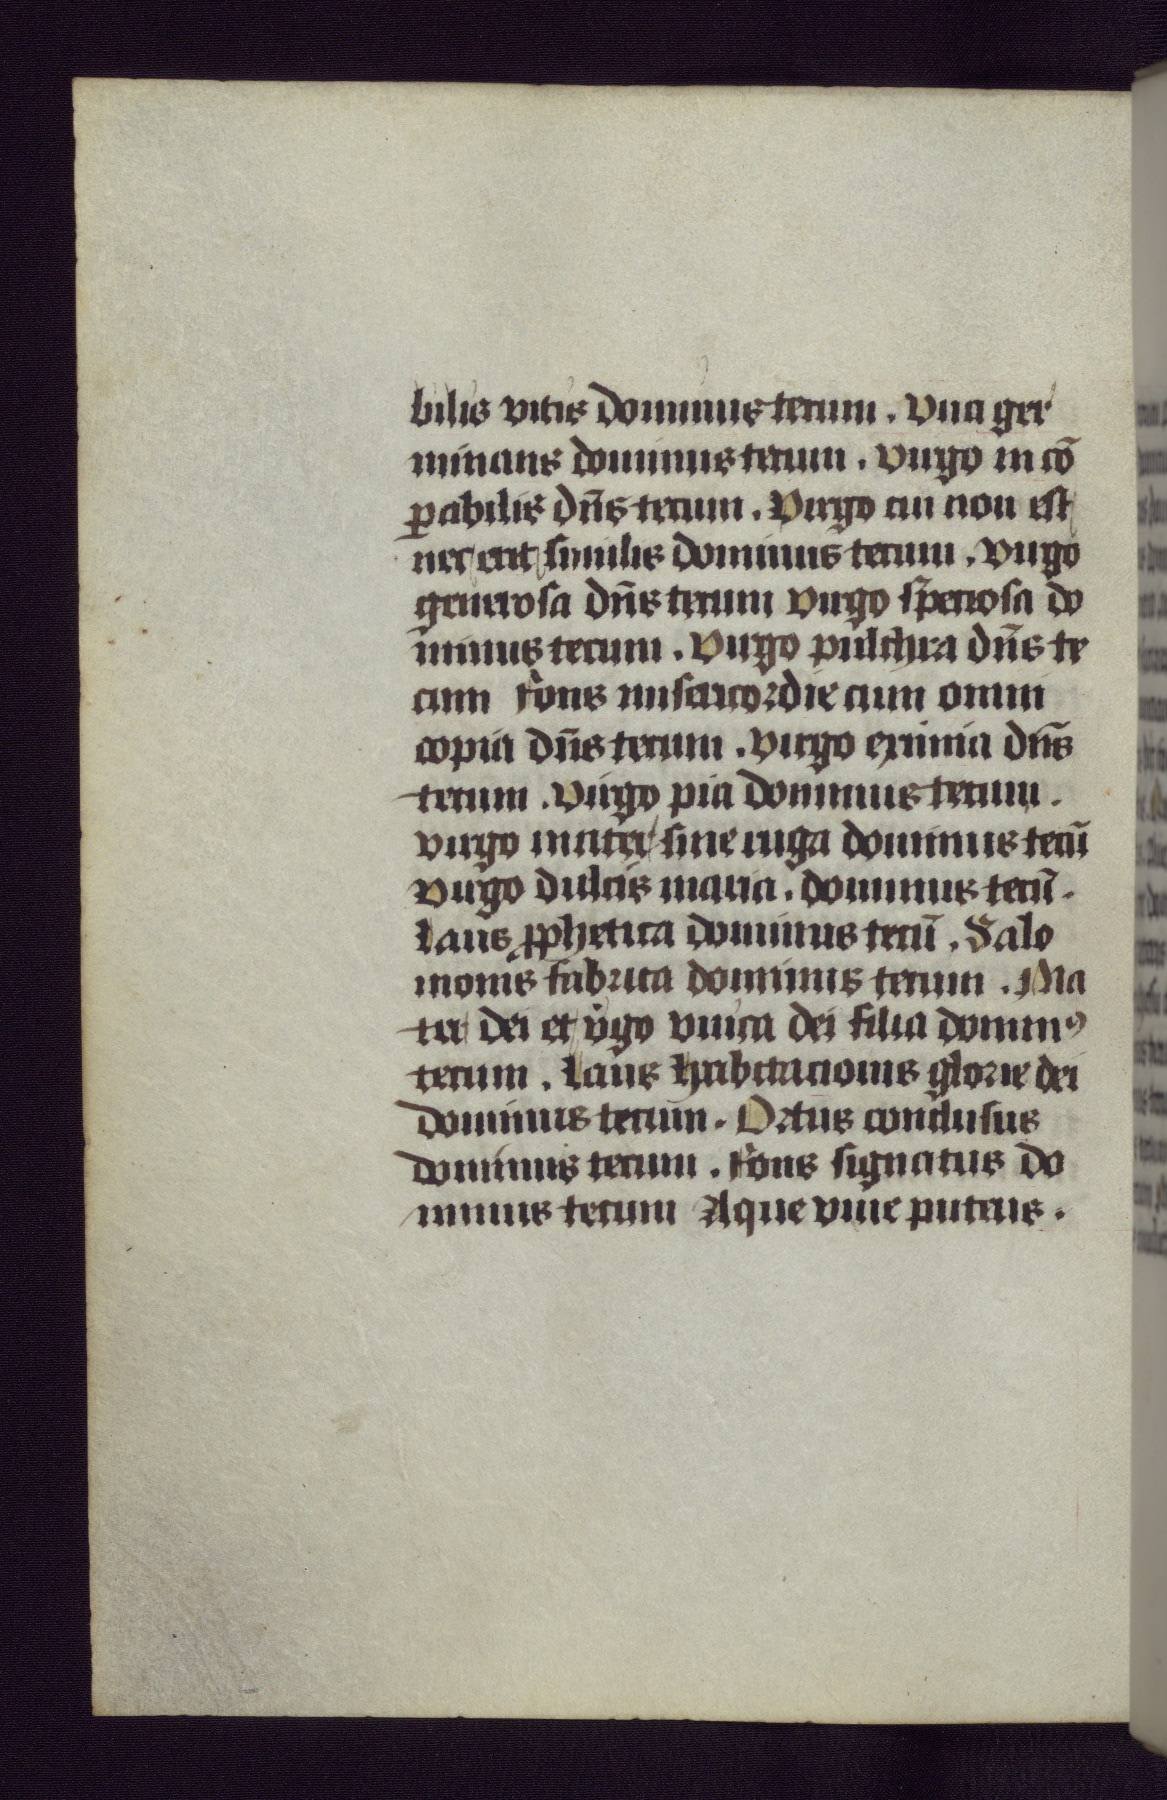 bilis vitis dominus tecum. Vua ger
minans dominus tecum. Virgo in cō
ꝑabilis dn̄s tecum. Virgo cui non est
nec erit similis dominus tecum. Virgo
generosa dn̄s tecum virgo speciosa do
minus tecum. Virgo pulchra dn̄s te
cum fons misericordie cum omni
copia dn̄s tecum. Virgo eximia dn̄s
tecum. Virgo pia dominus tecum.
virgo mater sine ruga dominus tecū
virgo dulcis maria. dominus tecū.
Laus ꝓphetica dominus tecū. Salo
monis fabrica dominus tecum. Ma
ter dei et v̾go vnica dei filia dominꝰ
tecum. Laus habitacionis glorie dei
dominus tecum. Ortus conclusus
dominus tecum. Fons signatus do
minus tecum Aque viue puteus.